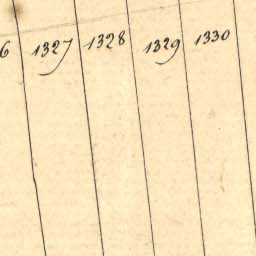 6 1327 1328 1329 1330